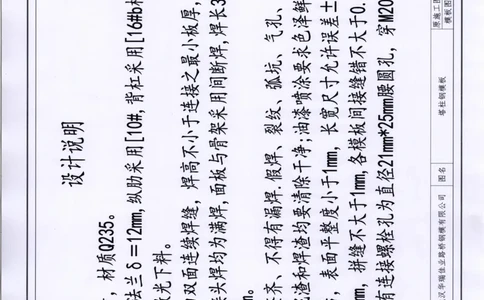 设计说明
，材质Q235。
法兰δ=12mm，纵肋采用[10#，背杠采用[16#b
光下料。
双面连续焊缝，焊高不小于连接之最小板厚，
头焊均为满焊，面板与骨架采用间断焊，焊长3
m。
齐、不得有漏焊.假焊、裂纹、弧坑、气孔、
渣和焊渣均要清除干净；油漆喷涂要求色泽鲜
，表面平整度小于1mm，长宽尺寸允许误差±
mm，拼缝不大于1mm，各模板间接缝错不大于0.
有连接螺栓孔为直径21mm*25mm腰圆孔，穿M20
汉华瑞佳业路桥钢模有限公司 图名 塔柱钢模板 原施工图
模板图